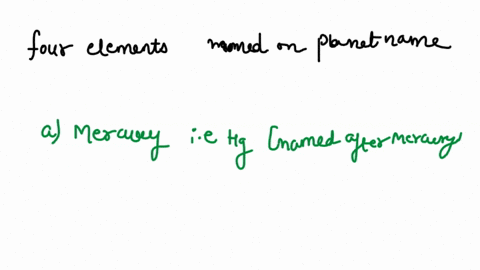 four elements named on planet name
a) Mercury i.e Hg (named after Mercury)